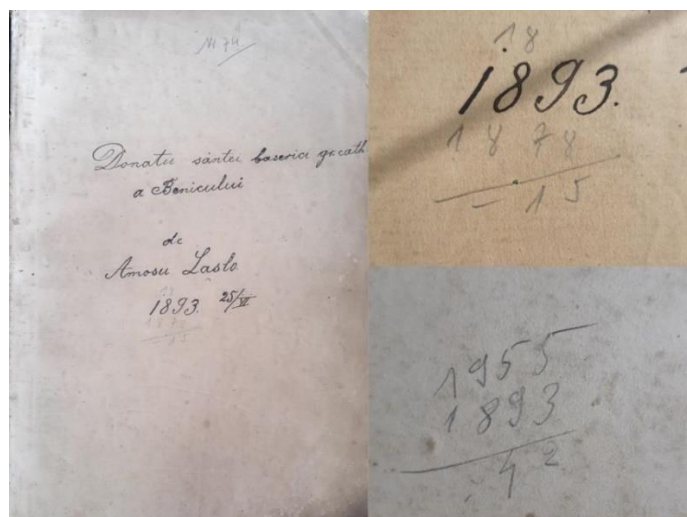 Nr. 74
Donatu sântei baserici gr. cath
a Benicului
de
Amosu Laslo
1893. 25/VI
1878
15
18
1893.
1878
– 15
1955
1893
42